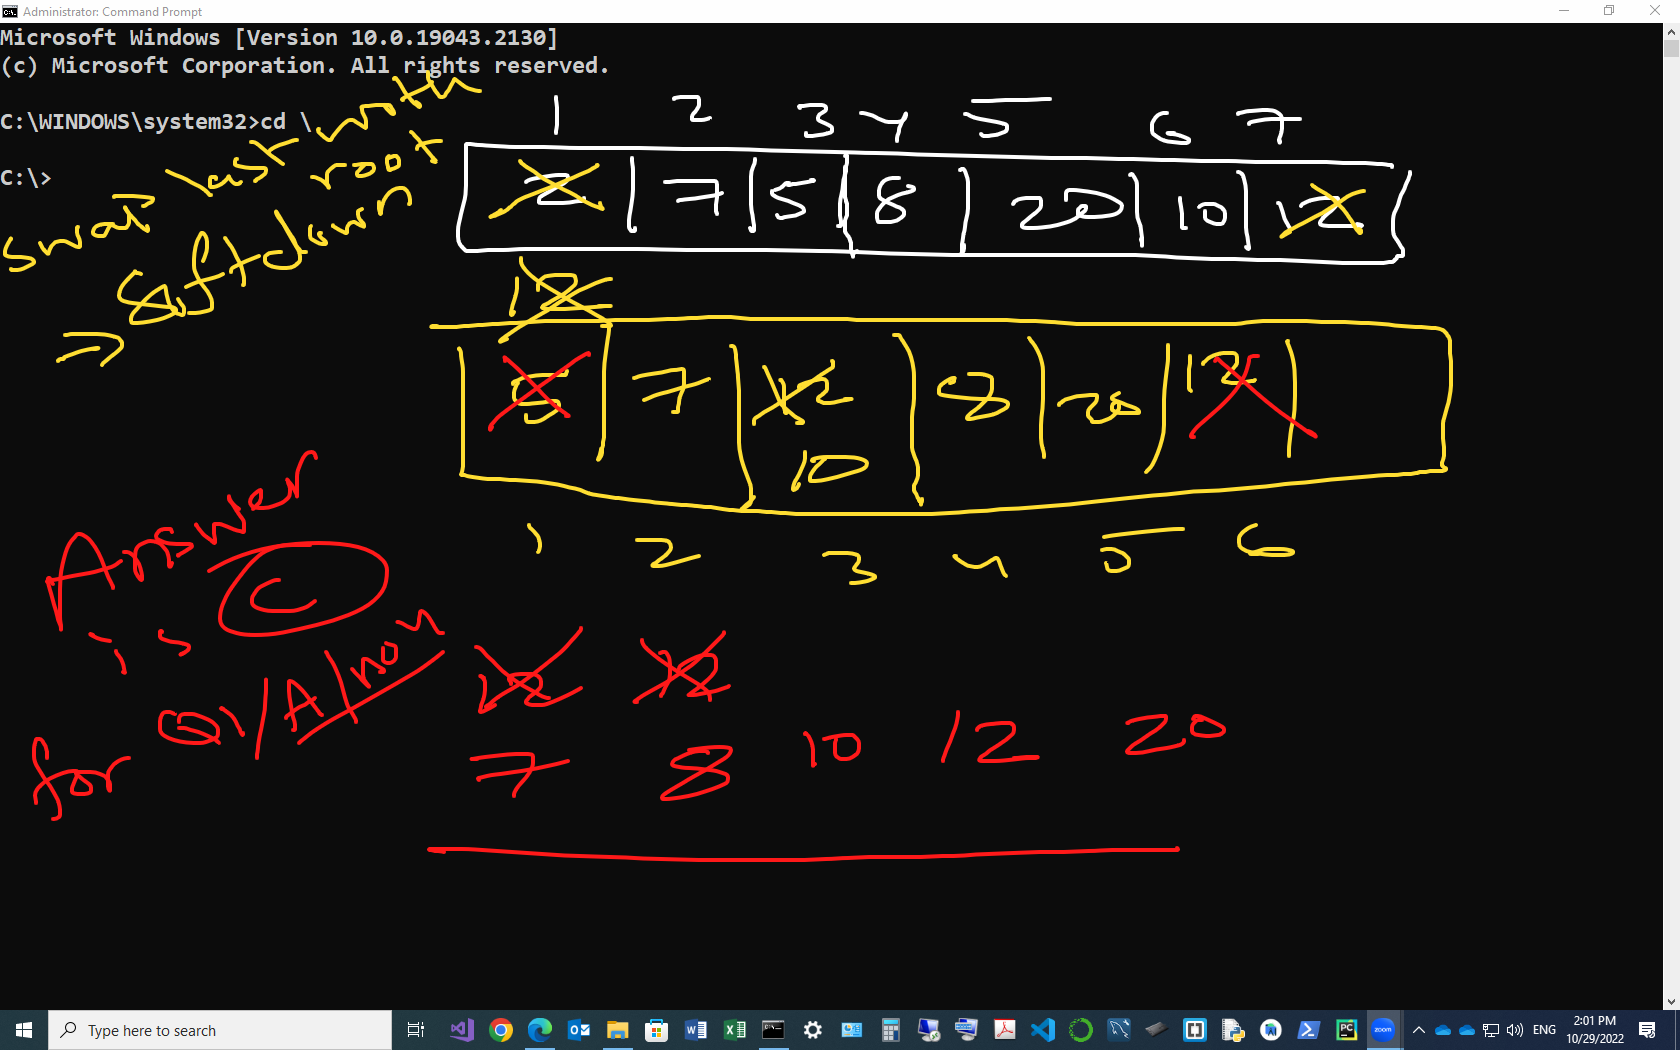 Administrator: Command Prompt
Microsoft Windows [Version 10.0.19043.2130]
(c) Microsoft Corporation. All rights reserved.
C:\WINDOWS\system32>cd \
C:\>
swap last with
root
=> siftdown
1 2 3 4 5 6 7
2 7 5 8 20 10 12
12
5 7 12 8 20 12
10
1 2 3 4 5 6
Answer
is C
for Q1/A/
12 12
7 8 10 12 20
Type here to search
ENG
2:01 PM
10/29/2022